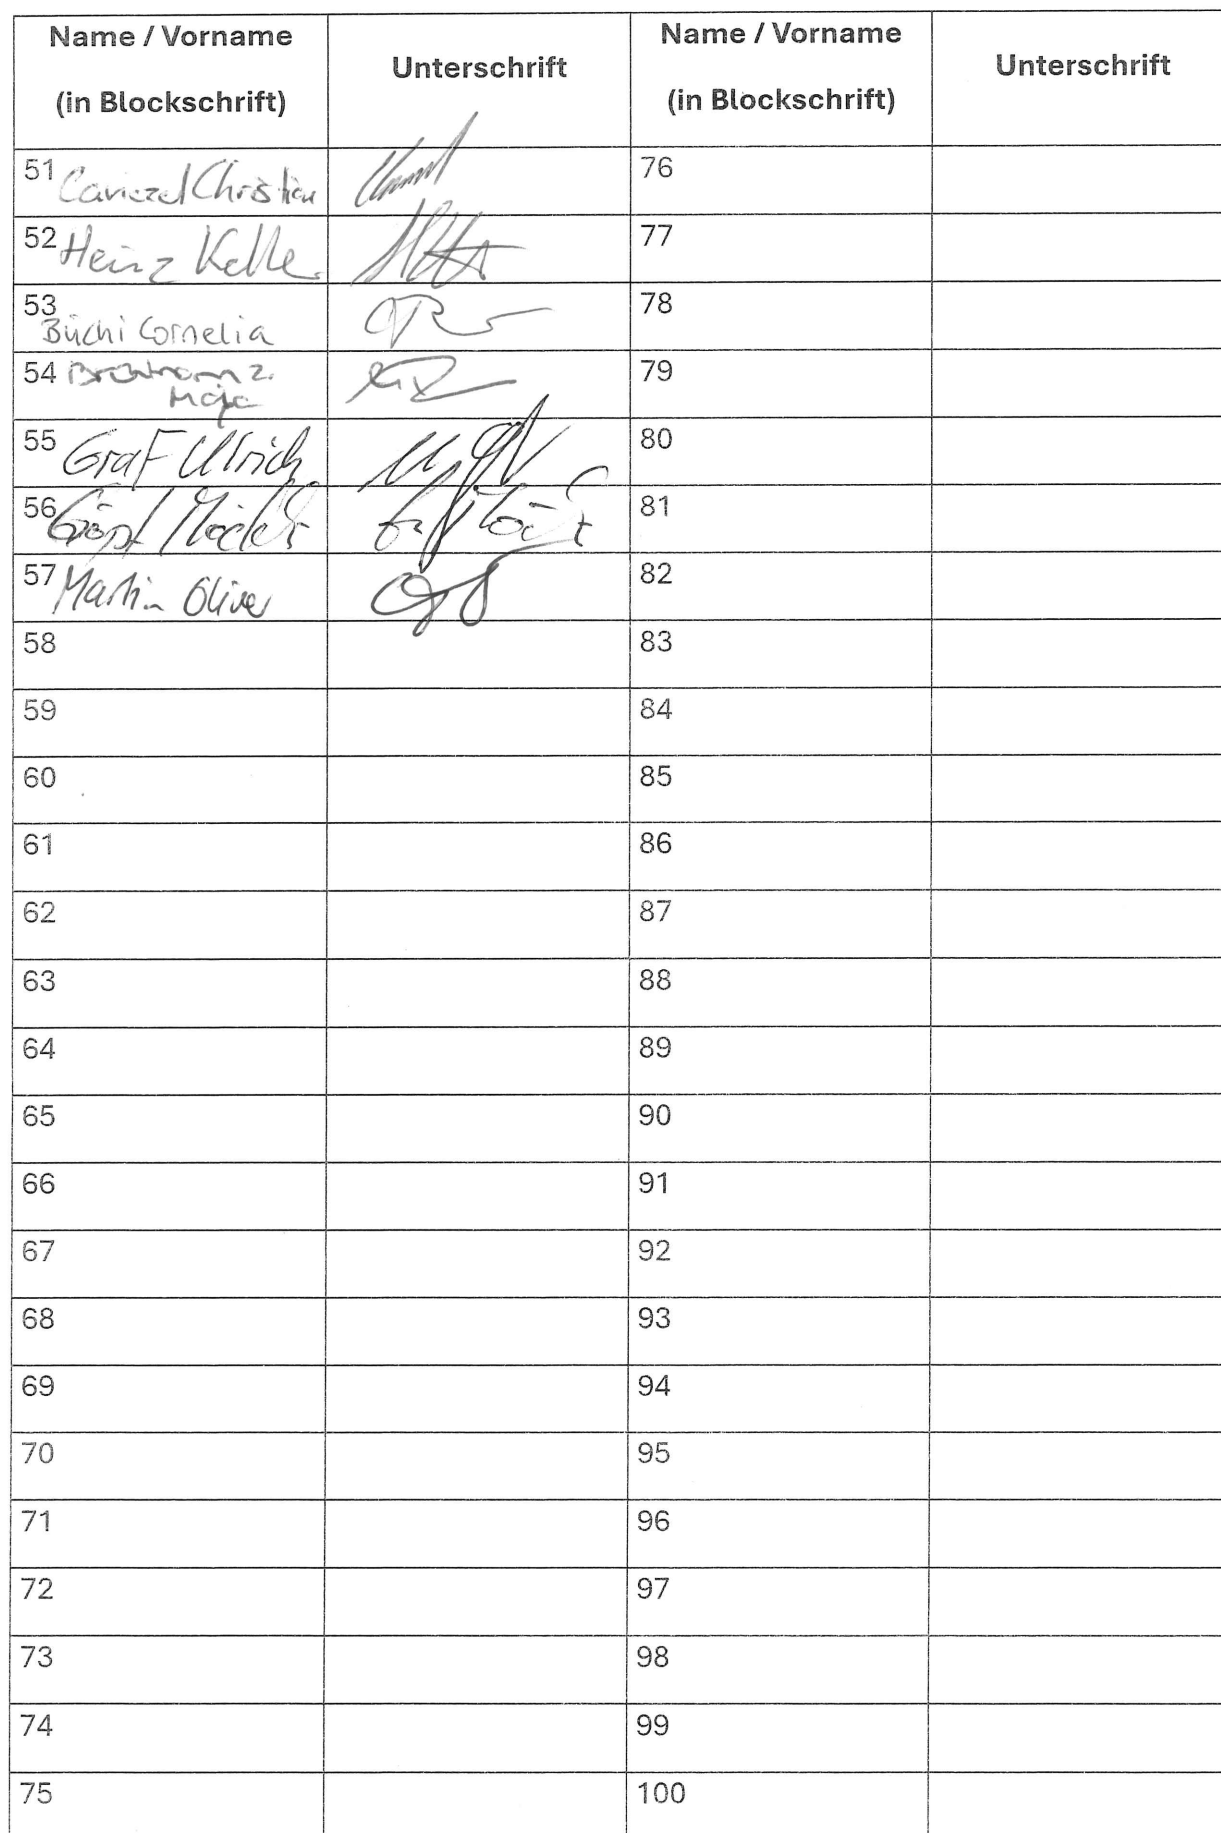 Name / Vorname
(in Blockschrift)
Unterschrift
Name / Vorname
(in Blockschrift)
Unterschrift
51 Christian
76
52 Heinz Keller
77
53 Büchi Cornelia
78
54
Maja
79
55 Graf Ulrich
80
56
81
57 Martin Oliver
82
58
83
59
84
60
85
61
86
62
87
63
88
64
89
65
90
66
91
67
92
68
93
69
94
70
95
71
96
72
97
73
98
74
99
75
100